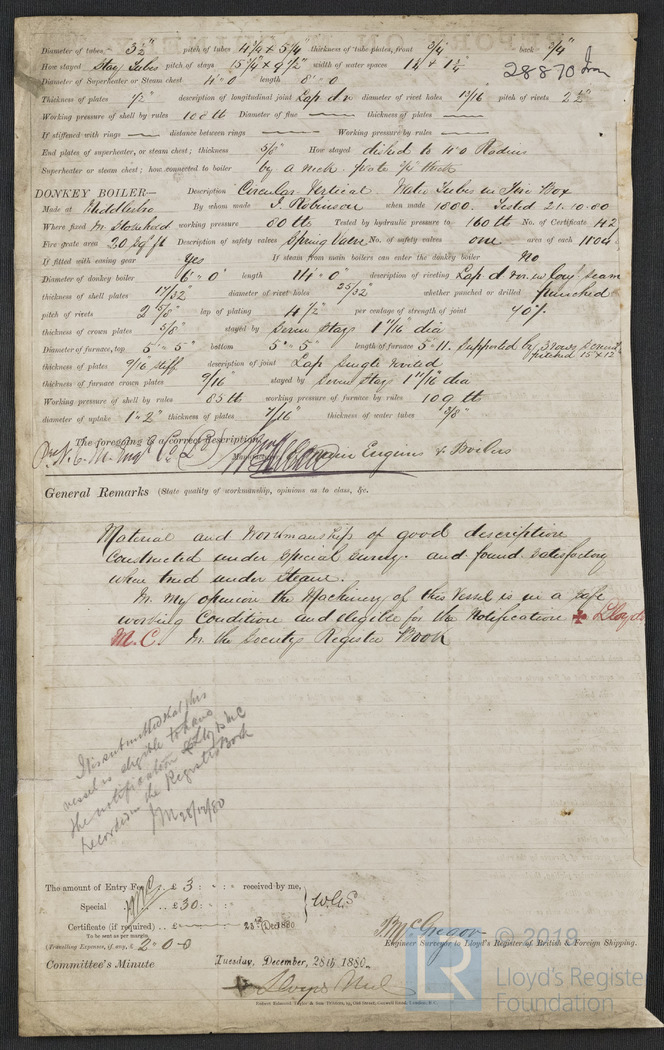 Diameter of tubes 3½" pitch of tubes 4¾ & 5¼" thickness of tube plates, front ¾" back ¾"
28870 Iron
How stayed Stay Tubes pitch of stays 15¾" x 9½" width of water spaces
Diameter of Superheater or Steam chest 4'0" length 8'0
Thickness of plates ½" description of longitudinal joint Lap d r diameter of rivet holes 13/16 pitch of rivets 2½"
Working pressure of shell by rules 100 lb Diameter of flue thickness of plates
If stiffened with rings distance between rings Working pressure by rules
End plates of superheater, or steam chest; thickness 5/8" How stayed dished to 4.0 Radius
Superheater or steam chest; how connected to boiler by a neck thick
DONKEY BOILER— Description Circular Vertical Water Tubes in Fire Box
Made at Middlesbro By whom made J. Robinson when made 1880. Tested 21.10.80
Where fixed In Stokehold working pressure 80 lb Tested by hydraulic pressure to 160 lb No. of Certificate 142
Fire grate area 20 sq ft Description of safety valves Spring Valve No. of safety valves one area of each 11.04
If fitted with easing gear Yes If steam from main boilers can enter the donkey boiler No
Diameter of donkey boiler 6'0" length 14'0" description of riveting Lap d seam
thickness of shell plates 17/32" diameter of rivet holes 25/32" whether punched or drilled punched
pitch of rivets 2 5/8" lap of plating 4½" per centage of strength of joint 70%
thickness of crown plates 5/8" stayed by Seven Stays 1 11/16 dia
Diameter of furnace, top 5'5" bottom 5'5" length of furnace 5'11. Supported by 3 rows screws pitched 15 x 12
thickness of plates 9/16 stiff description of joint Lap Single riveted
thickness of furnace crown plates 9/16" stayed by Seven Stays 1 11/16" dia
Working pressure of shell by rules 85 lb working pressure of furnace by rules 109 lb
diameter of uptake 1'2" thickness of plates 7/16" thickness of water tubes 3/8"
The foregoing is a correct description,
Manufacturer Engines & Boilers
General Remarks (State quality of workmanship, opinions as to class, &c.
Material and Workmanship of good description
Constructed under special survey. and found satisfactory
when tried under steam.
In my opinion the Machinery of this Vessel is in a safe
working Condition and eligible for the Notification ✠ Lloyds
M.C. In the Societys Register Book
It is submitted that this
vessel is eligible to have
the notification ✠ Lloyds MC
recorded in the Register Book
JM 28/12/80
The amount of Entry Fee .. £ 3 : " : " received by me,
Special .. £ 30 : " : " W.G.S
Certificate (if required) .. £ 23rd Dec 1880
To be sent as per margin.
(Travelling Expenses, if any, £ 2-0-0
J. McGregor
Engineer Surveyor to Lloyd's Register of British & Foreign Shipping.
Committee's Minute Tuesday, December, 28th 1880.
© 2019
LR
Lloyd's Register
Foundation